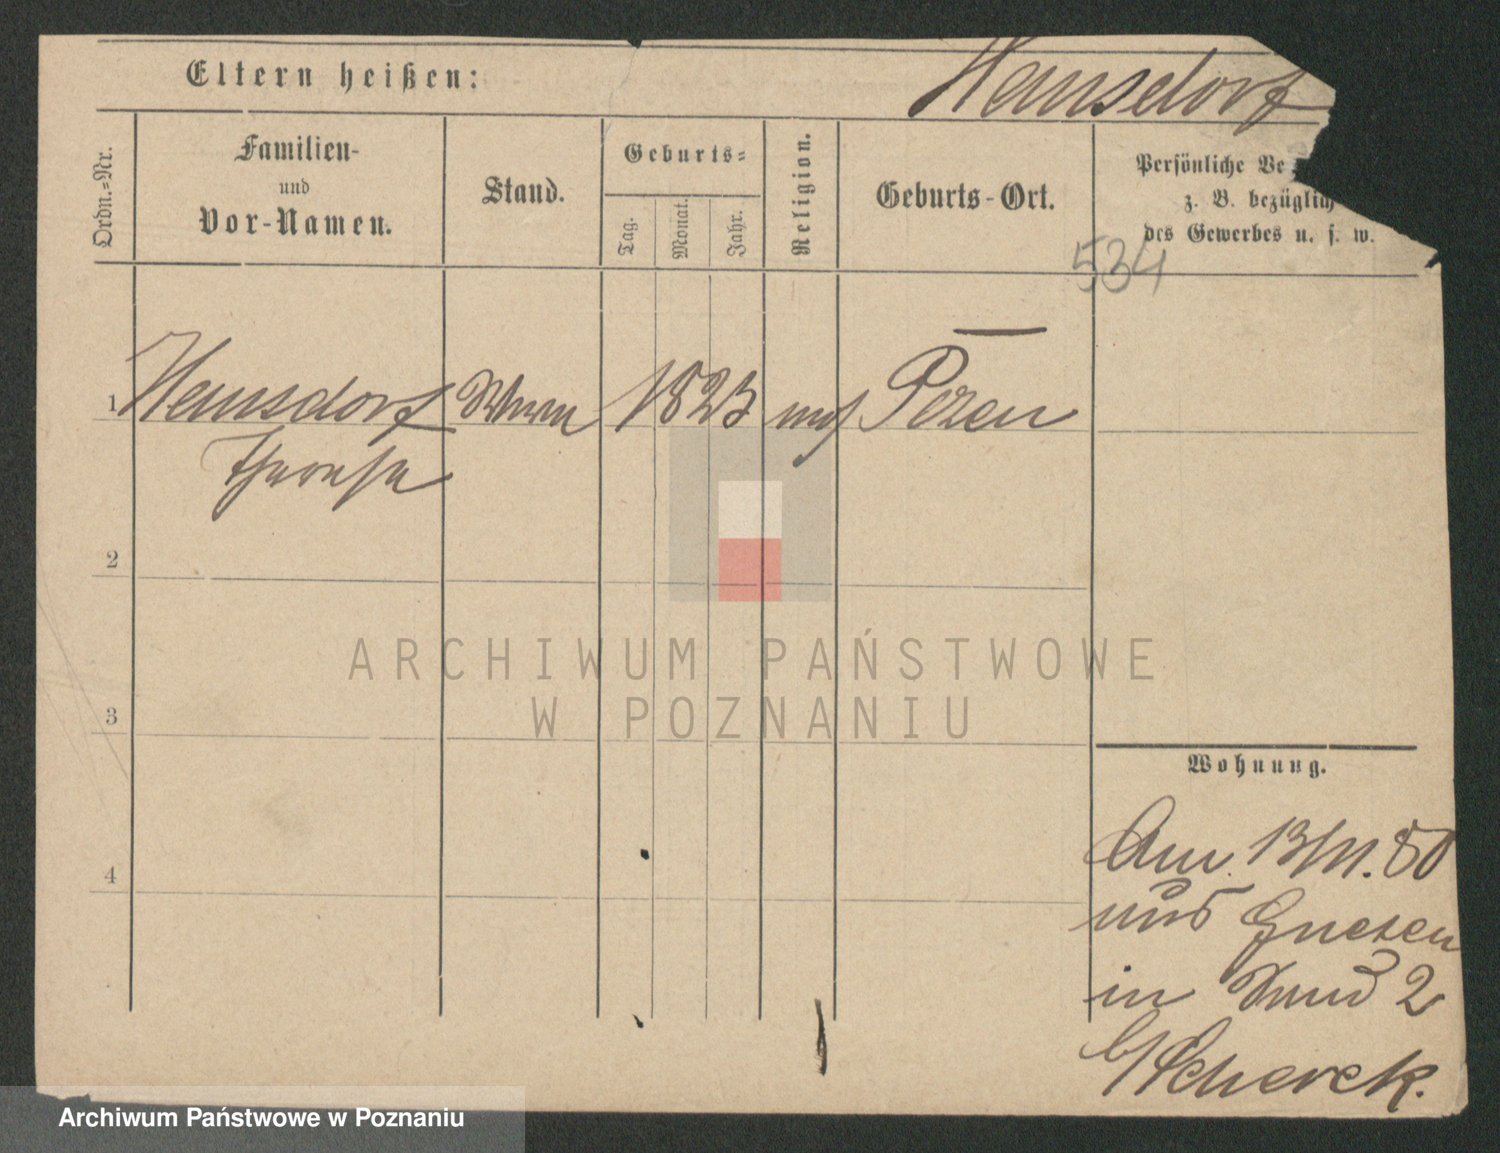 Eltern heißen:
Hensdorf
Ordn.=Nr.
Familien-
und
Vor-Namen.
Stand.
Geburts=
Tag.
Monat.
Jahr.
Religion.
Geburts-Ort.
Persönliche Ve
z. B. bezüglich
des Gewerbes u. s. w.
534
1 Hensdorf 1825 Posen
Therese
2
3
4
Wohnung.
Am 13/11. 80
aus Gnesen
in Sand 2
b/Scherek.
ARCHIWUM PAŃSTWOWE
W POZNANIU
Archiwum Państwowe w Poznaniu